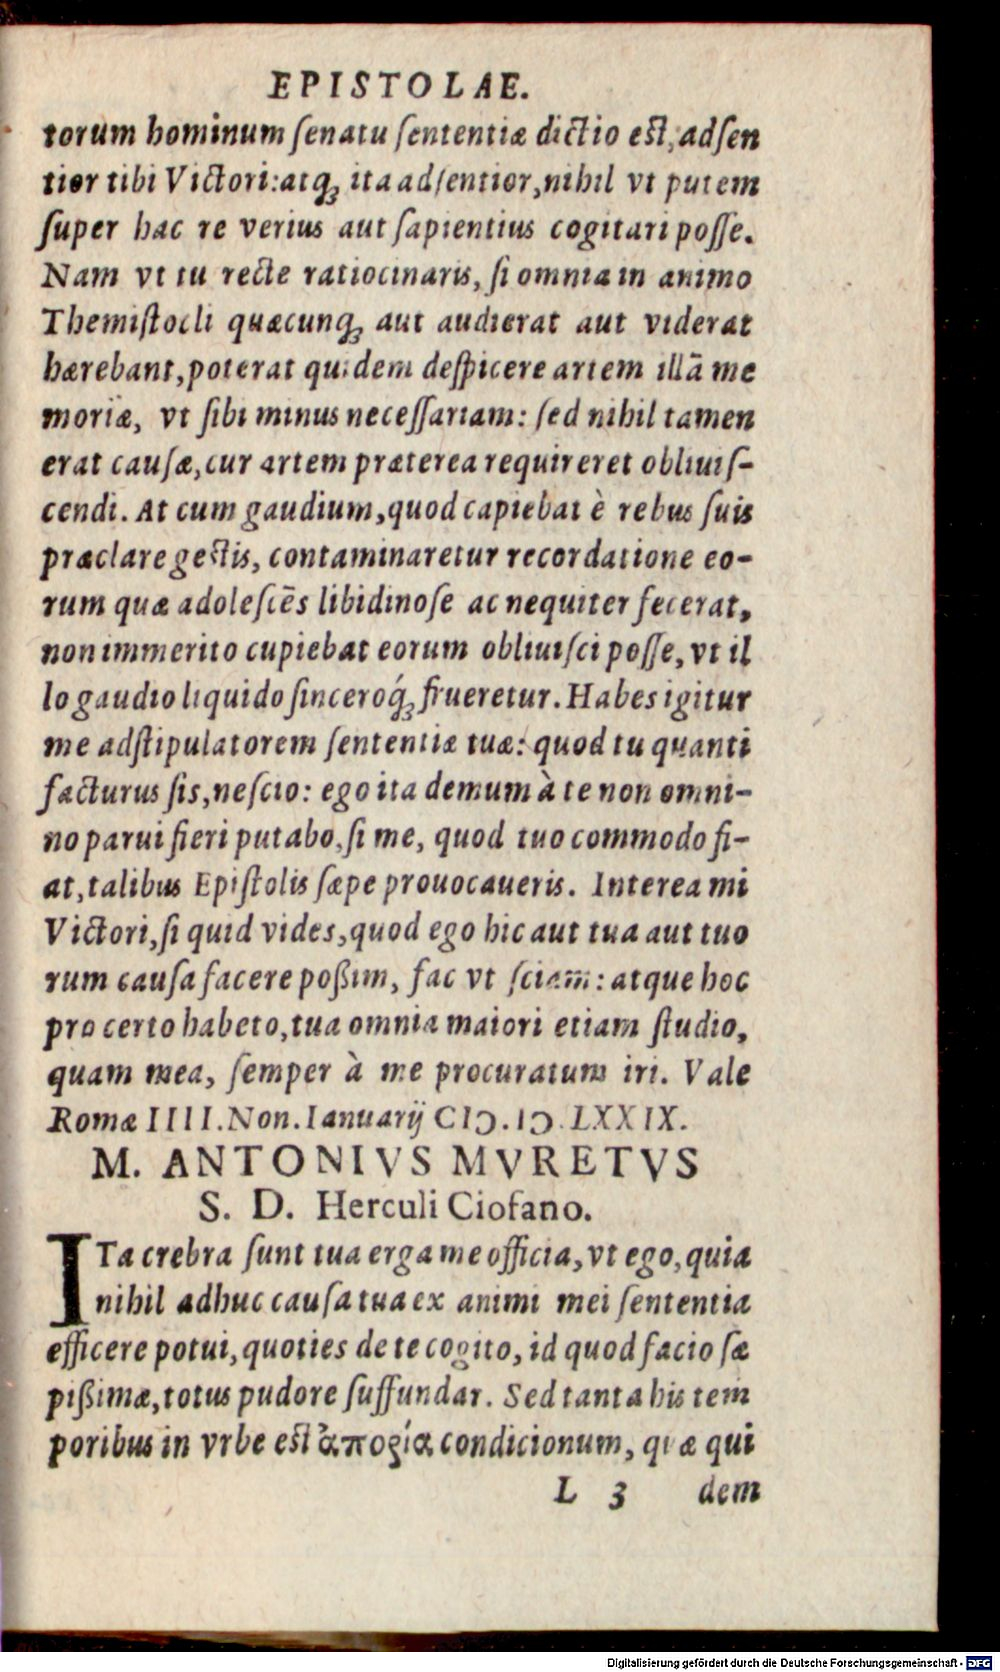 EPISTOLAE.
torum hominum ſenatu ſententiæ dictio eſt, adſen
tior tibi Victori: atq́ꝫ ita adſentior, nihil vt putem
ſuper hac re verius aut ſapientius cogitari poſſe.
Nam vt tu recte ratiocinaris, ſi omnia in animo
Themiſtocli quæcunqꝫ aut audierat aut viderat
hærebant, poterat quidem deſpicere artem illā me
moriæ, vt ſibi minus neceſſariam: ſed nihil tamen
erat cauſæ, cur artem præterea requireret obliuiſ-
cendi. At cum gaudium, quod capiebat è rebus ſuis
præclare geſtis, contaminaretur recordatione eo-
rum quæ adoleſcēs libidinoſe ac nequiter fecerat,
non immerito cupiebat eorum obliuiſci poſſe, vt il
lo gaudio liquido ſinceroq́ꝫ frueretur. Habes igitur
me adſtipulatorem ſententiæ tuæ: quod tu quanti
facturus ſis, neſcio: ego ita demum à te non omni-
no parui fieri putabo, ſi me, quod tuo commodo fi-
at, talibus Epiſtolis ſæpe prouocaueris. Interea mi
Victori, ſi quid vides, quod ego hic aut tua aut tuo
rum cauſa facere poßim, fac vt ſciam: atque hoc
pro certo habeto, tua omnia maiori etiam ſtudio,
quam mea, ſemper à me procuratum iri. Vale
Romæ IIII. Non. Ianuarij CIↃ. IↃ. LXXIX.
M. ANTONIVS MVRETVS
S. D. Herculi Ciofano.
ITa crebra ſunt tua erga me officia, vt ego, quia
nihil adhuc cauſa tua ex animi mei ſententia
efficere potui, quoties de te cogito, id quod facio ſæ
pißimæ, totus pudore ſuffundar. Sed tanta his tem
poribus in vrbe eſt ἀπορία condicionum, quæ qui
L 3 dem
Digitalisierung gefördert durch die Deutsche Forschungsgemeinschaft - DFG